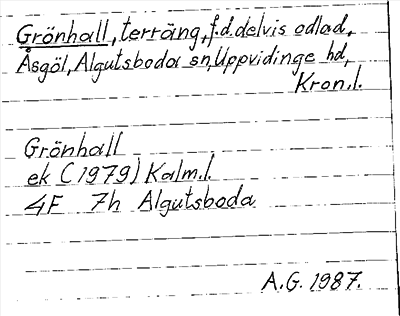 Grönhall, terräng, f.d. delvis odlad,
Åsgöl, Algutsboda sn, Uppvidinge hd,
Kron.l.
Grönhall
ek (1979) Kalm.l.
4F 7h Algutsboda
A.G. 1987.